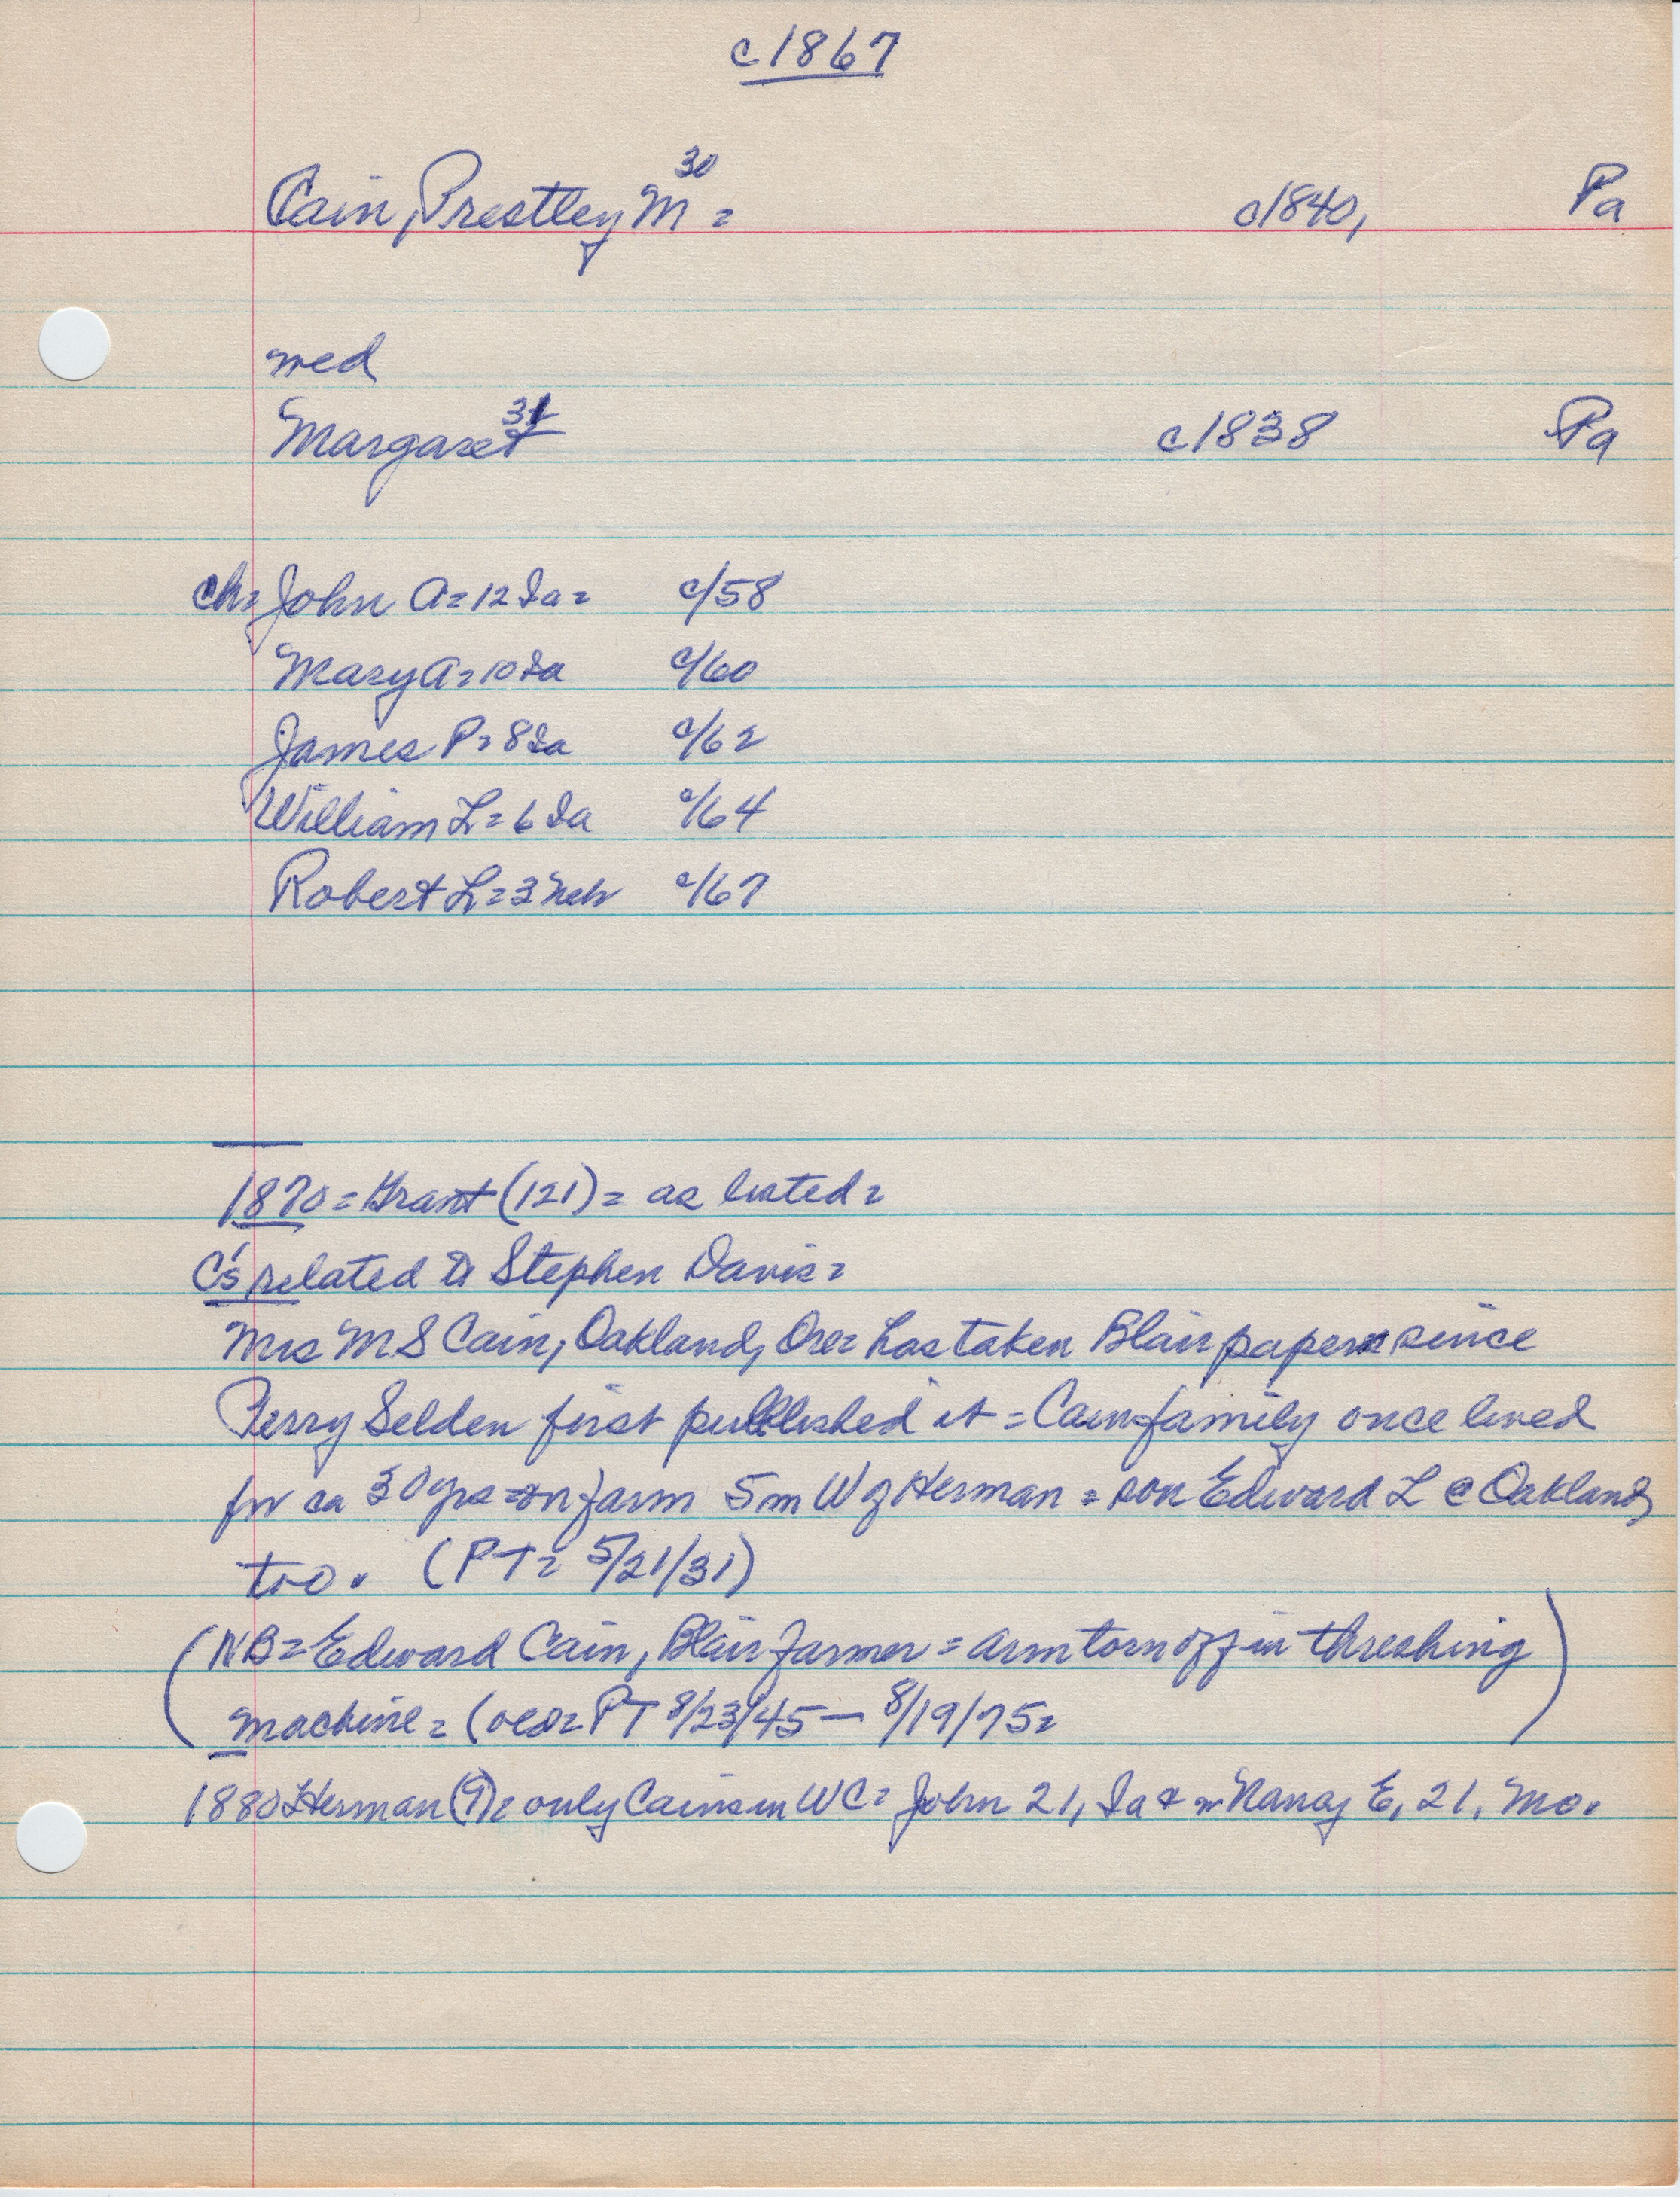 c1867
Cain, Prestley M 30 = c1840, Pa
med
Margaret 31 c1838 Pa
ch= John A= 12 Ia= c/58
Mary A= 10 Ia c/60
James P= 8 Ia c/62
William L= 6 Ia c/64
Robert L= 3 Neb c/67
1870 = Grant (121) = as listed=
C's related to Stephen Davis=
Mrs M S Cain, Oakland, Ore= has taken Blair paper since
Perry Selden first published it = Cain family once lived
for ca 30 yrs = on farm 5m W of Herman = son Edward L @ Oakland,
too. (PT= 5/21/31)
(NB= Edward Cain, Blair farmer = arm torn off in threshing
machine = ( PT 8/23/45 — 8/19/75=
1880 Herman (9)= only Cains in WC= John 21, Ia & w Nancy E, 21, Mo.